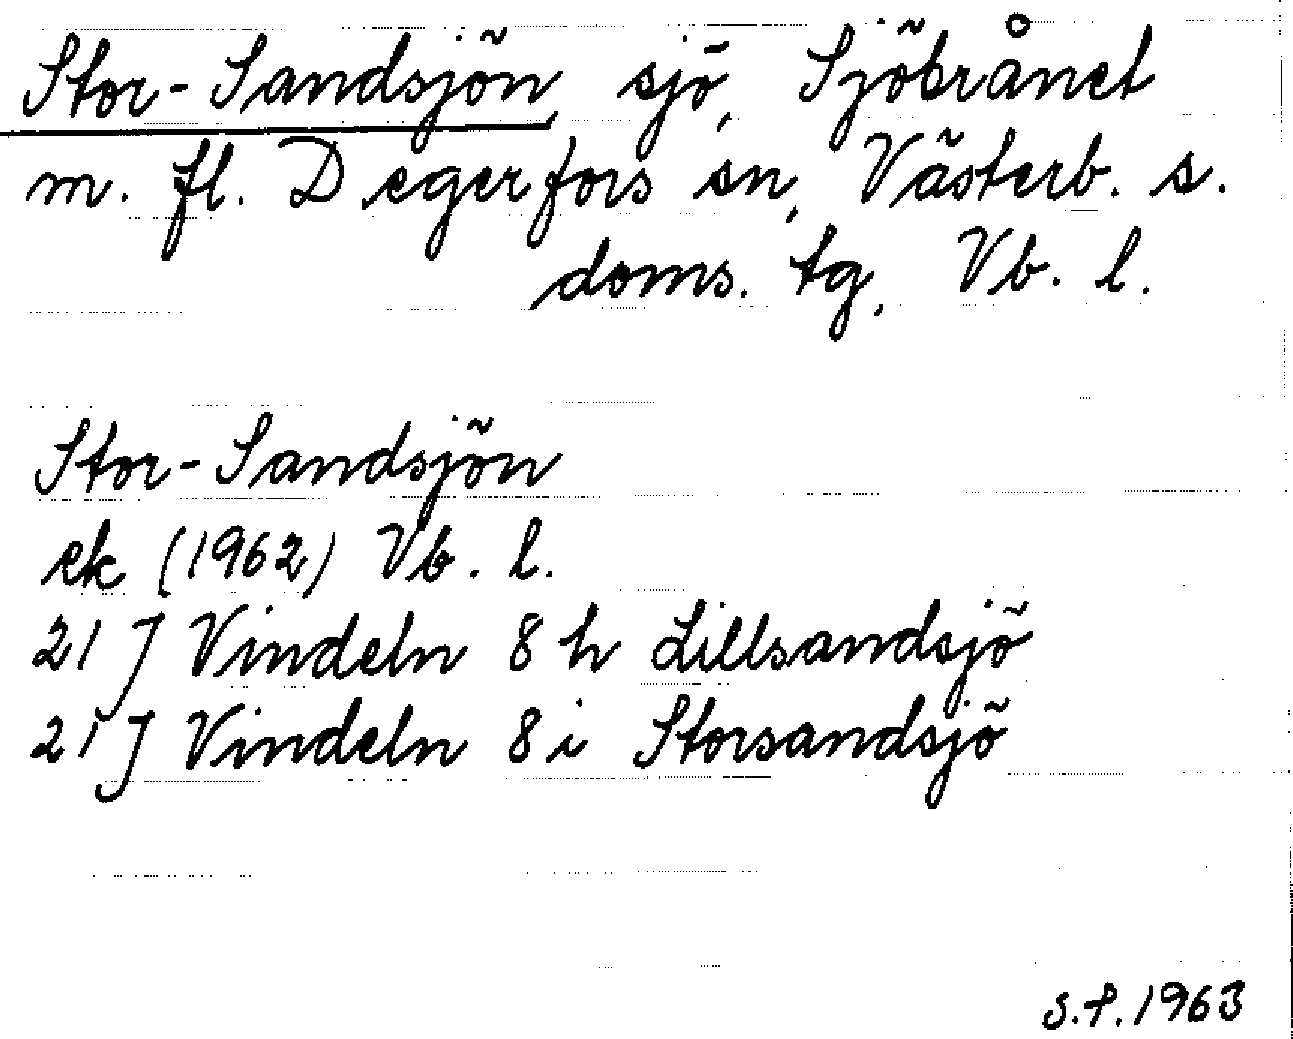 Stor-Sandsjön, sjö, Sjöbrånet
m. fl. Degerfors sn, Västerb. s.
doms. tg, Vb. l.
Stor-Sandsjön
ek (1962) Vb. l.
21 J Vindeln 8 h Lillsandsjö
21 J Vindeln 8 i Storsandsjö
S.P. 1963